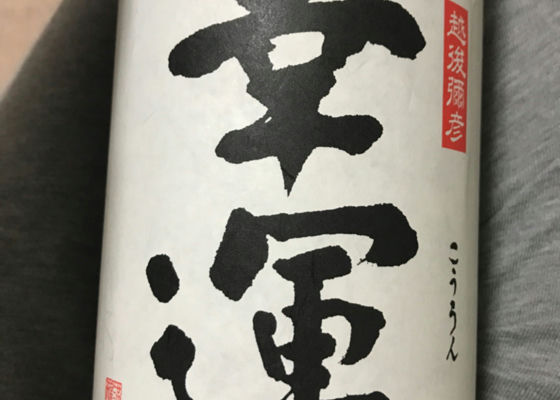 越後彌彦
幸運
こううん